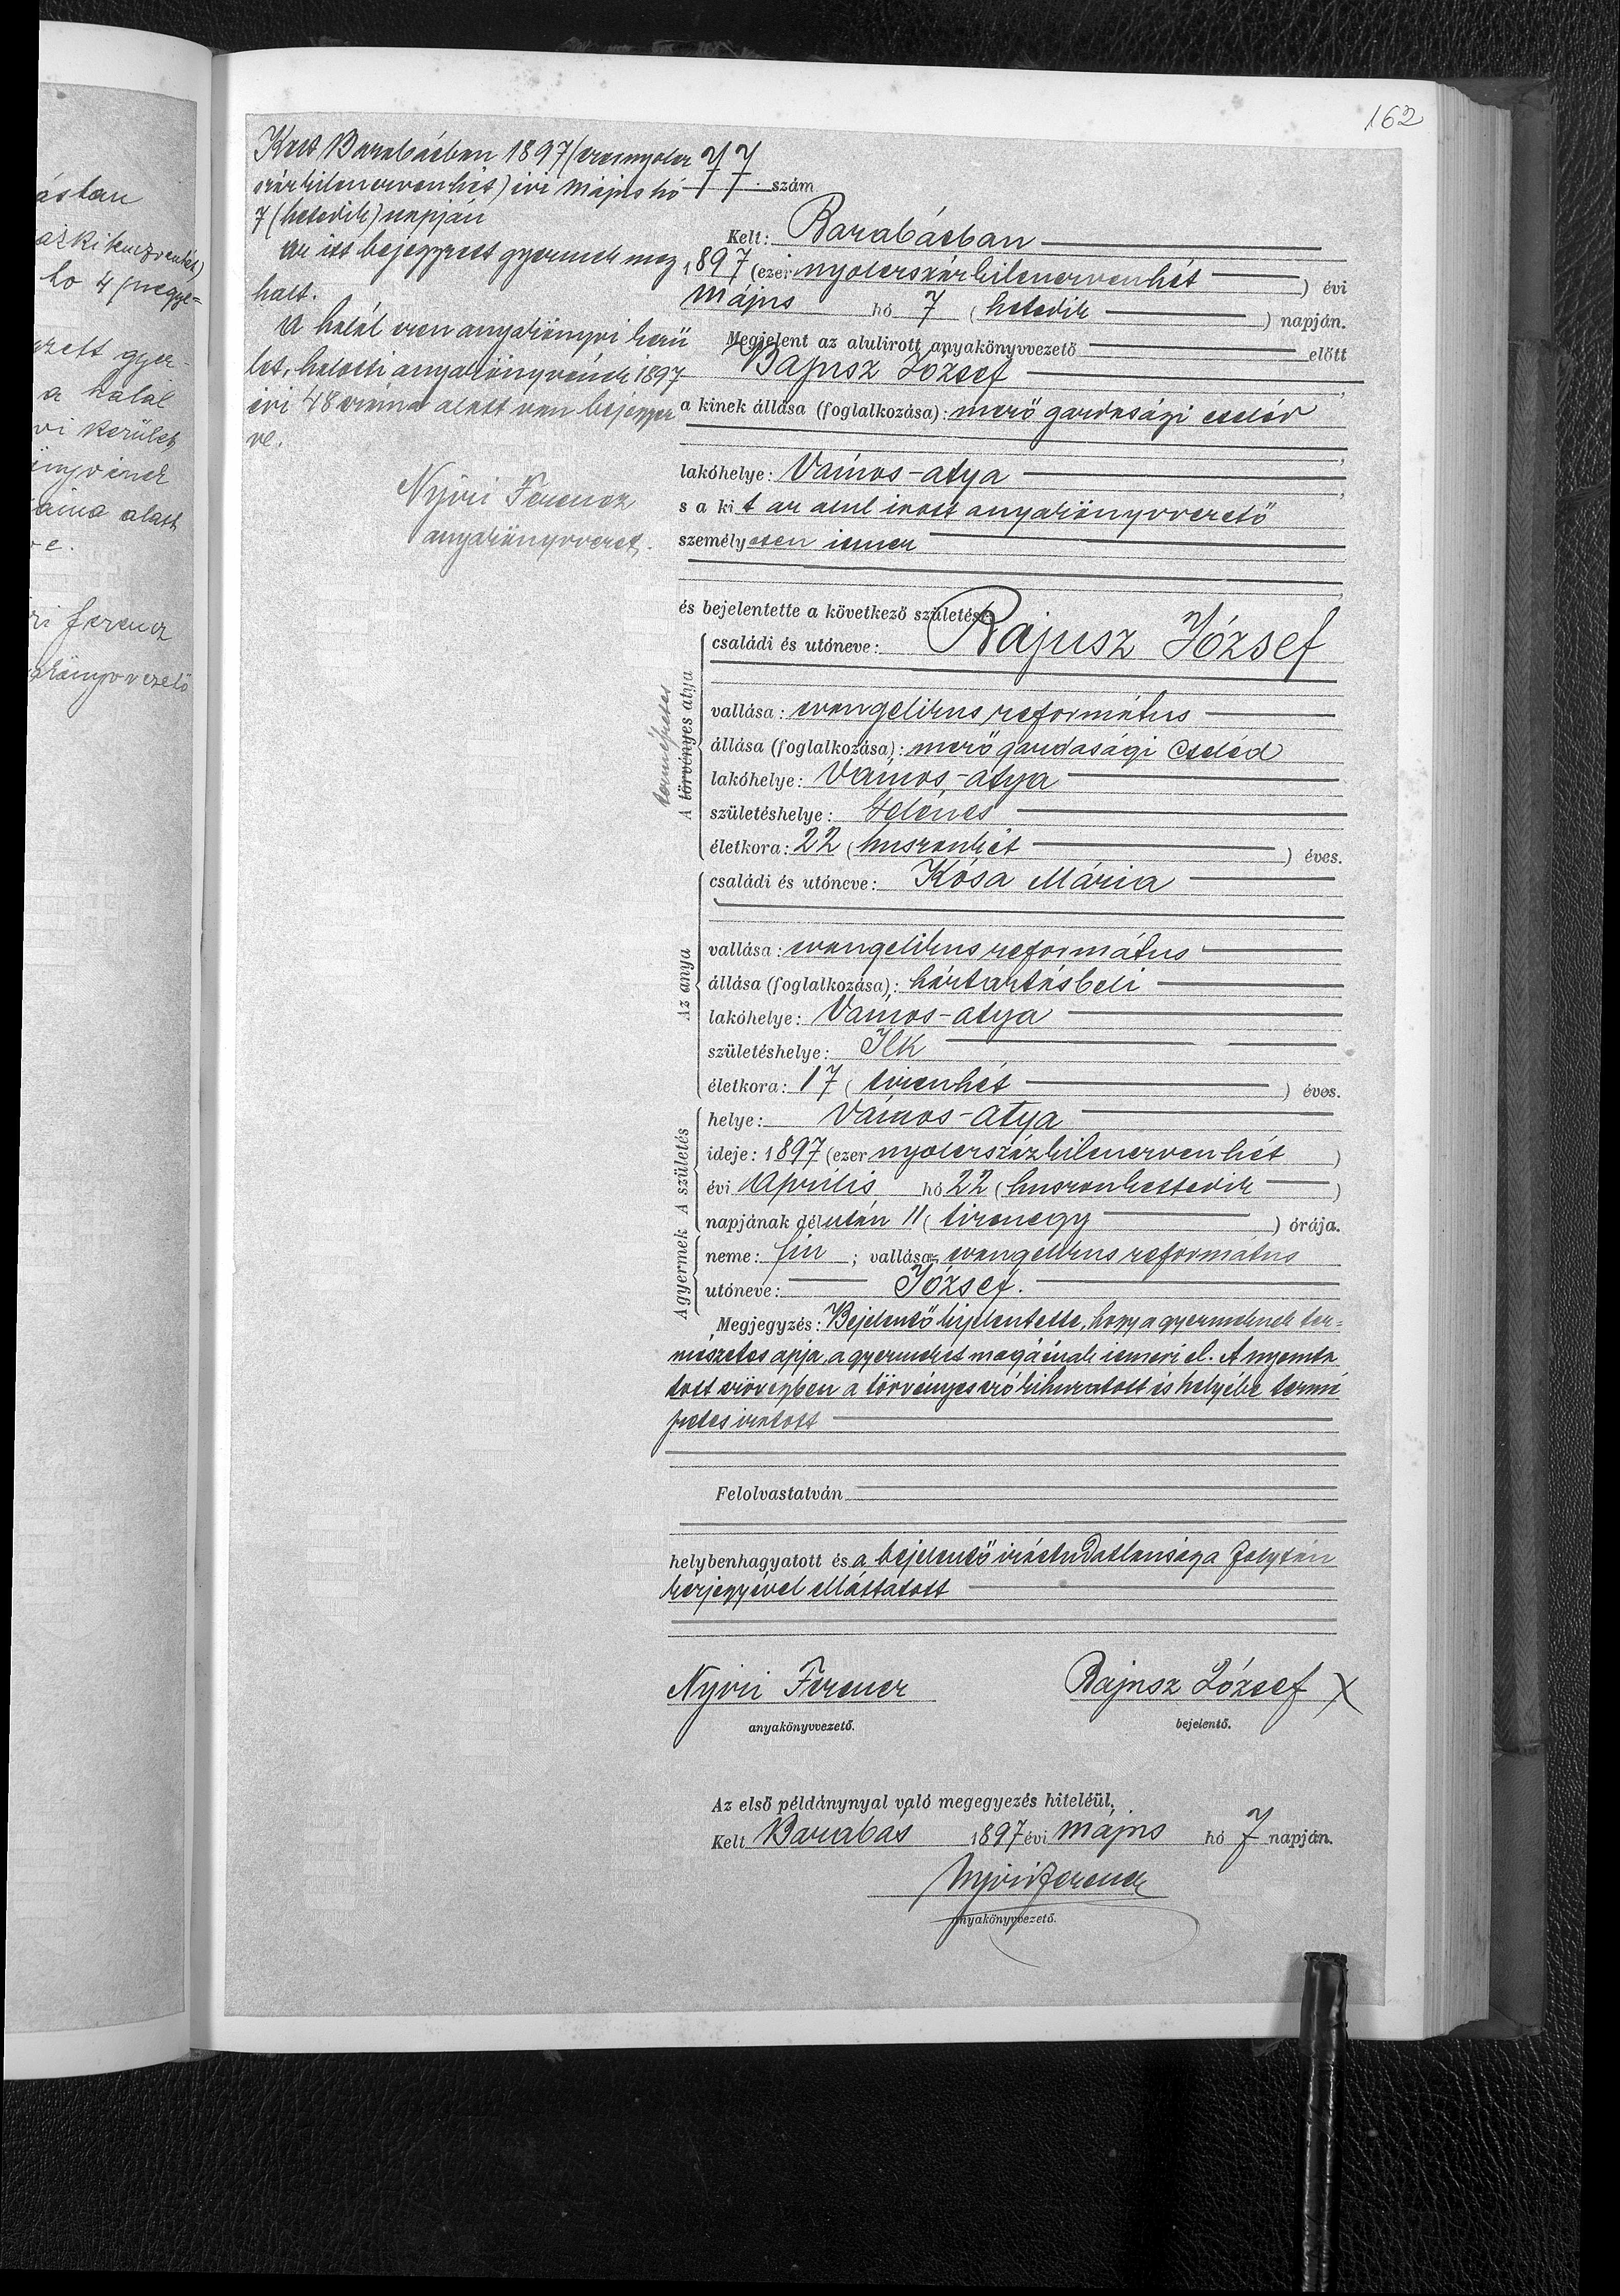 162
ástan
az kilenczvenhét)
hó 4 /negye=
gzett gyer-
a halál
vi kerület,
önyvének
áma alatt
ve.
ri Ferencz
akönyvvezető
Kelt Barabásban 1897 (ezernyolcz
százkilenczvenhét) évi Május hó
7 (hetedik) napján
Az itt bejegyzett gyermek meg
halt.
A halál ezen anyakönyvi kerü
let, halotti anyakönyvének 1897
évi 48 száma alatt van bejegyez
ve.
Nyiri Ferencz
anyakönyvvezet.
77 szám
Kelt: Barabásban
1897 (ezer nyolczszázkilenczvenhét) évi
Május hó 7 (hetedik) napján.
Megjelent az alulirott anyakönyvvezető előtt
Bajusz József
a kinek állása (foglalkozása): mezőgazdasági cseléd
lakóhelye: Vámos-atya
s a kit az alul irott anyakönyvvezető
személyesen ismer
és bejelentette a következő születést:
A törvényes atya
természetes
családi és utóneve: Bajusz József
vallása: evangelikus református
állása (foglalkozása): mezőgazdasági cseléd
lakóhelye: Vámos-atya
születéshelye: Gelénes
életkora: 22 (huszonkét) éves.
Az anya
családi és utóneve: Kósa Mária
vallása: evangelikus református
állása (foglalkozása): háztartásbeli
lakóhelye: Vámos-atya
születéshelye: Ilk
életkora: 17 (tizenhét) éves.
A születés
helye: Vámos-atya
ideje: 1897 (ezer nyolczszázkilenczvenhét)
évi Április hó 22 (huszonkettedik)
napjának délután 11 (tizenegy) órája.
A gyermek
neme: fiu; vallása: evangelikus református
utóneve: József.
Megjegyzés: Bejelentő kijelentette, hogy a gyermeknek ter=
mészetes apja, a gyermeket magáénak ismeri el. A nyomta
tott szövegben a törvényes szó kihuzatott és helyébe termé
szetes iratott
Felolvastatván
helybenhagyatott és a bejelentő irástudatlansága folytán
kézjegyével elláttatott
Nyiri Ferencz Bajusz József X
anyakönyvvezető. bejelentő.
Az első példánynyal való megegyezés hiteléül,
Kelt Barabás 1897 évi május hó 7 napján.
Nyiri Ferencz
anyakönyvvezető.